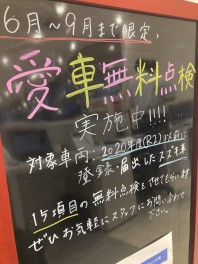 6月〜9月まで限定、
愛車無料点検
実施中!!!!
対象車両:2020年月(R2)以前に
登録・届出したスズキ車
15項目の無料点検をさせてもらいます
ぜひお気軽にスタッフにお問い合わせ
下さい。